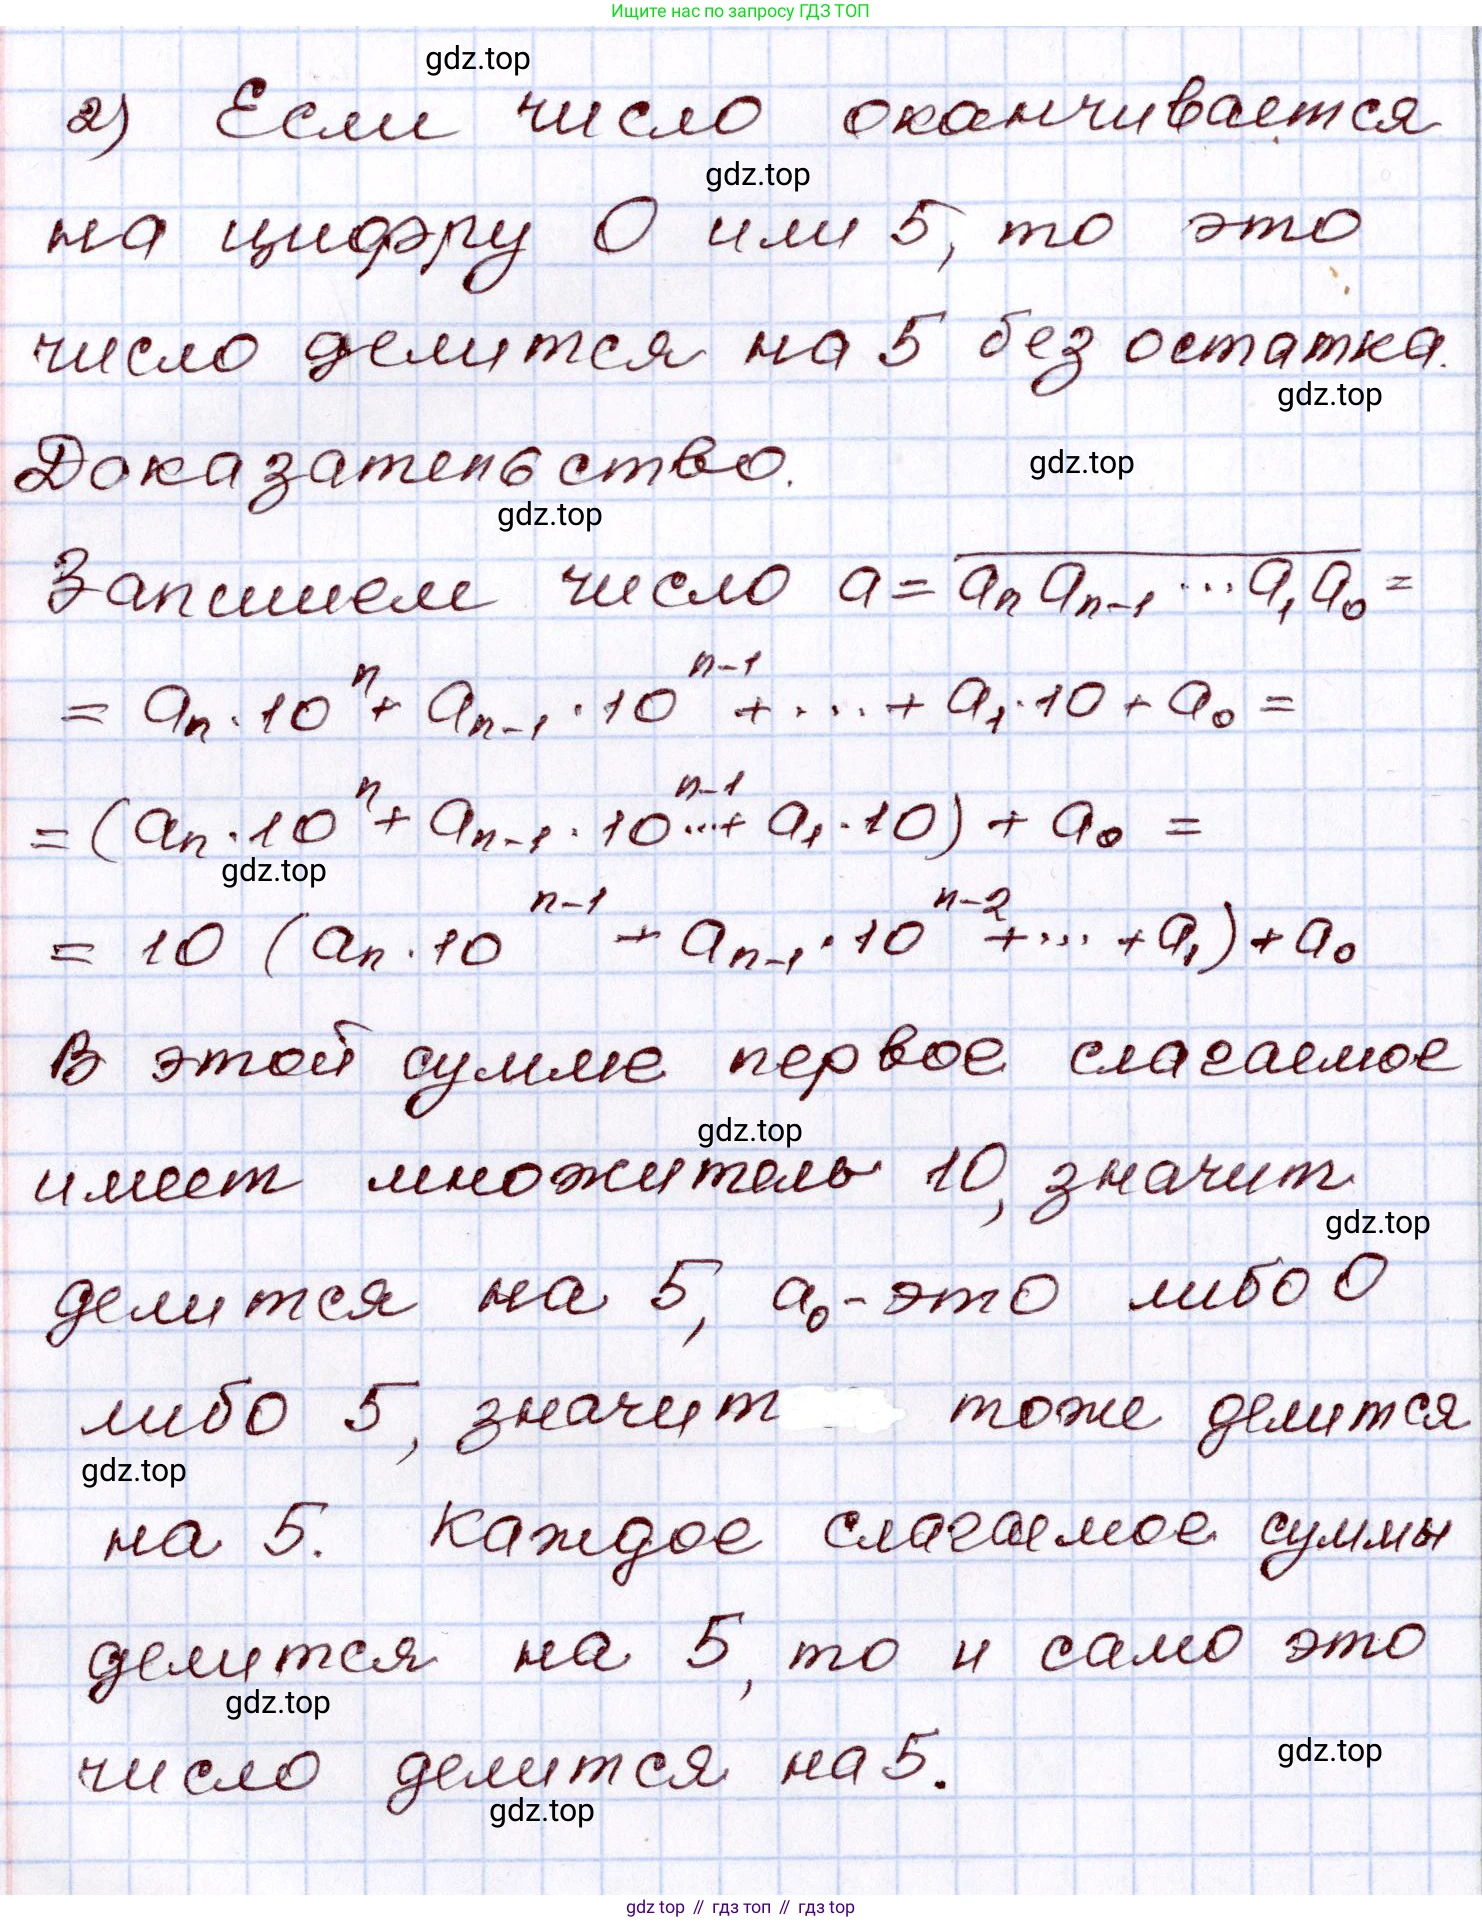 Ищите нас по запросу ГДЗ ТОП
gdz.top
2) Если число оканчивается
gdz.top
на цифру 0 или 5, то это
число делится на 5 без остатка.
gdz.top
Доказательство.
gdz.top
gdz.top
Запишем число a = \overline{aₙaₙ₋₁...a₁a₀} =
= aₙ·10ⁿ + aₙ₋₁·10ⁿ⁻¹ + ... + a₁·10 + a₀ =
= (aₙ·10ⁿ + aₙ₋₁·10ⁿ⁻¹...+ a₁·10) + a₀ =
gdz.top
= 10 (aₙ·10ⁿ⁻¹ + aₙ₋₁·10ⁿ⁻² + ... + a₁) + a₀
В этой сумме первое слагаемое
gdz.top
имеет множитель 10, значит
gdz.top
делится на 5, a₀ - это либо 0
либо 5, значит тоже делится
gdz.top
на 5. Каждое слагаемое суммы
делится на 5, то и само это
gdz.top
число делится на 5.
gdz.top
gdz.top
gdz top // гдз топ // гдз top